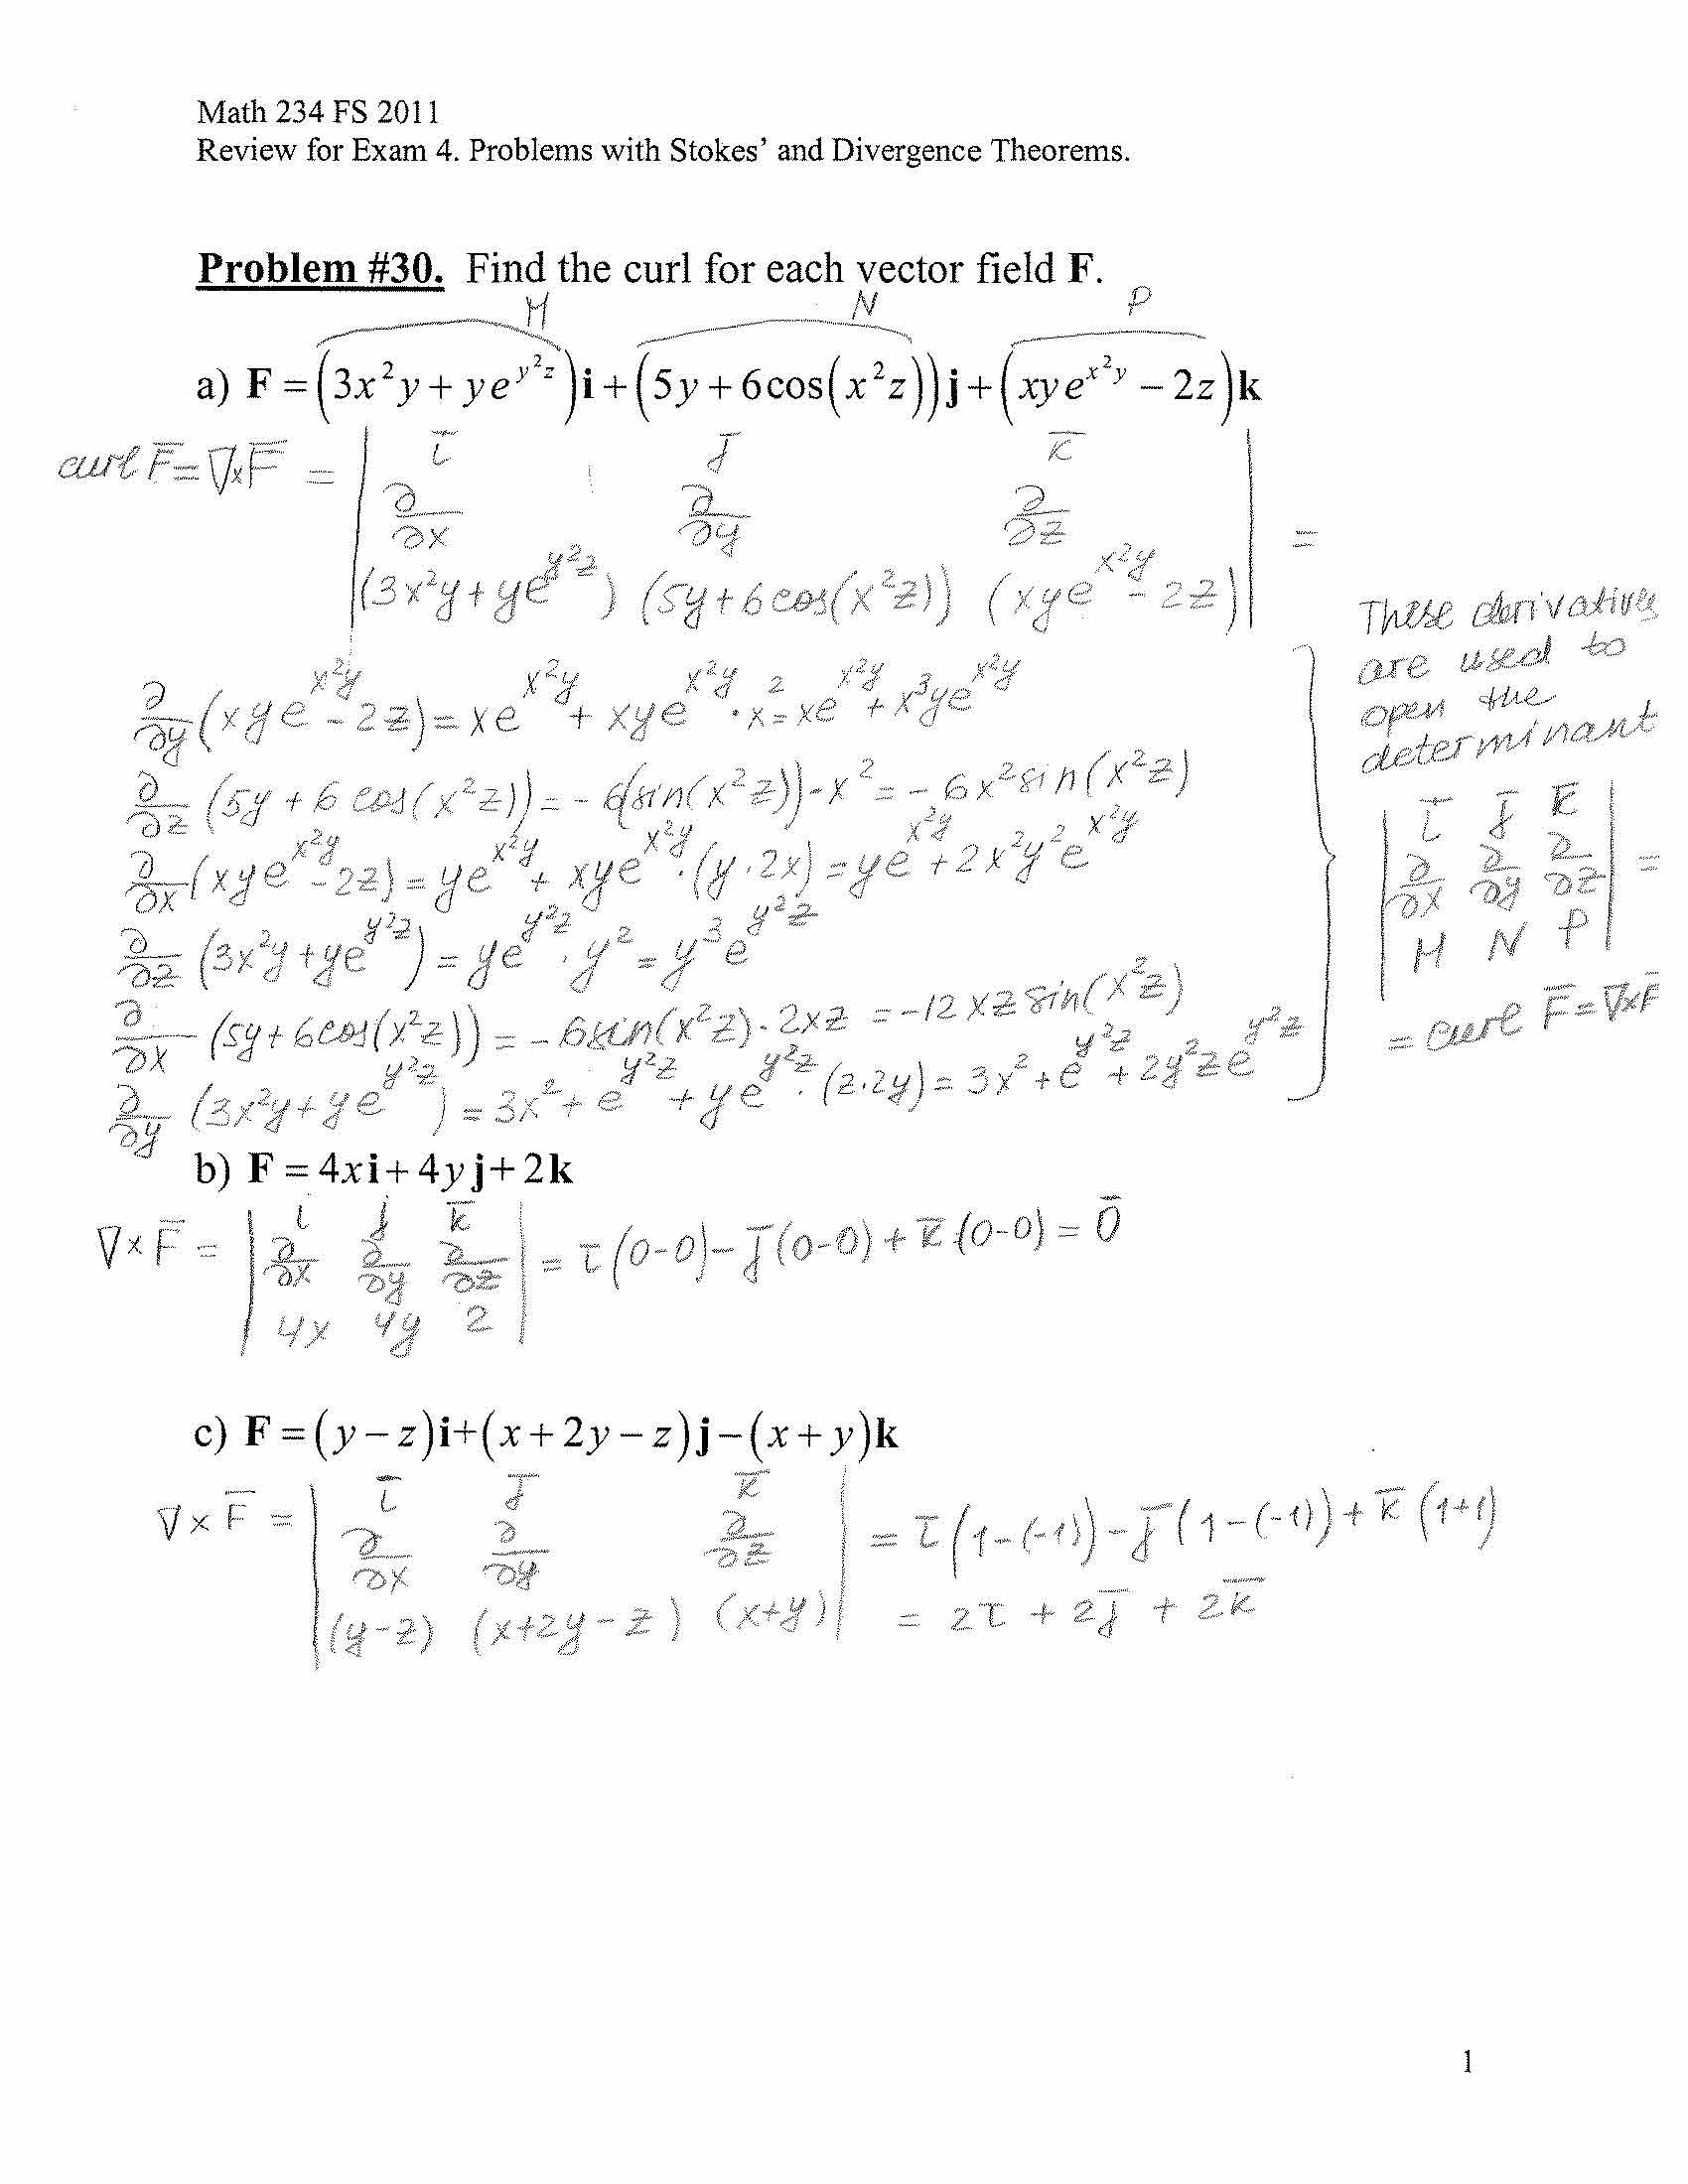 Math 234 FS 2011
Review for Exam 4. Problems with Stokes' and Divergence Theorems.
Problem #30. Find the curl for each vector field F.
M N P
a) F = (3x²y + ye^{y²z})i + (5y + 6cos(x²z))j + (xye^{x²y} − 2z)k
curl F̅ = ∇×F̅ = | i̅ j̅ k̅ |
∂/∂x ∂/∂y ∂/∂z =
(3x²y + ye^{y²z}) (5y + 6cos(x²z)) (xye^{x²y} − 2z)
These derivatives
are used to
open the
determinant
∂/∂y (xye^{x²y} − 2z) = xe^{x²y} + xye^{x²y} · x² = xe^{x²y} + x³ye^{x²y}
∂/∂z (5y + 6cos(x²z)) = −6(sin(x²z)) · x² = −6x²sin(x²z)
∂/∂x (xye^{x²y} − 2z) = ye^{x²y} + xye^{x²y} · (y·2x) = ye^{x²y} + 2x²y²e^{x²y}
∂/∂z (3x²y + ye^{y²z}) = ye^{y²z} · y² = y³e^{y²z}
∂/∂x (5y + 6cos(x²z)) = −6sin(x²z) · 2xz = −12xz sin(x²z)
∂/∂y (3x²y + ye^{y²z}) = 3x² + e^{y²z} + ye^{y²z} · (z·2y) = 3x² + e^{y²z} + 2y²ze^{y²z}
| i̅ j̅ k̅ |
∂/∂x ∂/∂y ∂/∂z =
M N P
= curl F̅ = ∇×F̅
b) F = 4xi + 4yj + 2k
∇×F̅ = | i j k̅ |
∂/∂x ∂/∂y ∂/∂z = i̅(0−0) − j̅(0−0) + k̅(0−0) = 0̅
4x 4y 2
c) F = (y − z)i + (x + 2y − z)j − (x + y)k
∇×F̅ = | i̅ j̅ k̅ |
∂/∂x ∂/∂y ∂/∂z = i̅(1−(−1)) − j̅(1−(−1)) + k̅(1+1)
(y−z) (x+2y−z) (x+y) = 2i̅ + 2j̅ + 2k̅
1